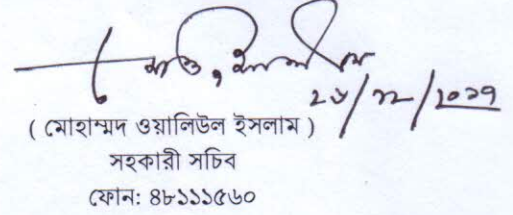 ২৬/১২/২০১৭
( মোহাম্মদ ওয়ালিউল ইসলাম )
সহকারী সচিব
ফোন: ৪৮১১১৫৬০